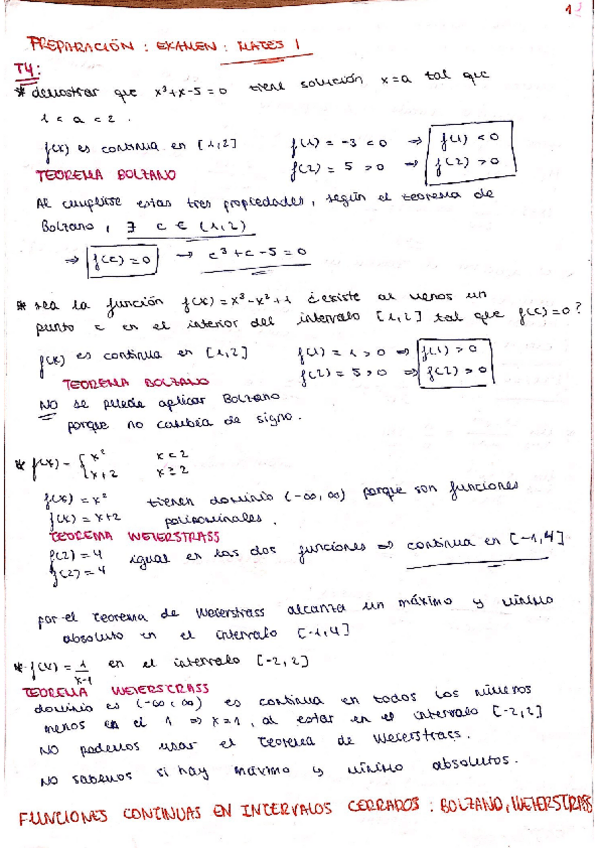 1
PREPARACIÓN : EXAMEN : MATES 1
T4:
* demostrar que x³+x-5=0 tiene solución x=a tal que
1 < a < 2 .
f(x) es continua en [1,2] f(1) = -3 < 0 ⇒ f(1) < 0
TEOREMA BOLZANO f(2) = 5 > 0 ⇒ f(2) > 0
Al cumplirse estas tres propiedades, según el teorema de
Bolzano, ∃ c ∈ (1,2)
⇒ f(c) = 0 → c³ + c - 5 = 0
* sea la función f(x) = x³-x²+1 ¿existe al menos un
punto c en el interior del intervalo [1,2] tal que f(c)=0?
f(x) es continua en [1,2] f(1) = 1 > 0 ⇒ f(1) > 0
TEOREMA BOLZANO f(2) = 5 > 0 ⇒ f(2) > 0
NO se puede aplicar Bolzano
porque no cambia de signo.
* f(x) = { x² x < 2
x+2 x ≥ 2
f(x) = x² tienen dominio (-∞, ∞) porque son funciones
f(x) = x+2 polinominales.
TEOREMA WEIERSTRASS
f(2) = 4 igual en las dos funciones ⇒ continua en [-1,4]
f(2) = 4
por el teorema de Weierstrass alcanza un máximo y mínimo
absoluto en el intervalo [-1,4]
* f(x) = 1/x-1 en el intervalo [-2,2]
TEOREMA WEIERSTRASS
dominio es (-∞, ∞) es continua en todos los números
menos en el 1 ⇒ x=1, al estar en el intervalo [-2,2]
NO podemos usar el teorema de Weierstrass.
NO sabemos si hay máximo y mínimo absolutos.
FUNCIONES CONTINUAS EN INTERVALOS CERRADOS : BOLZANO, WEIERSTRASS